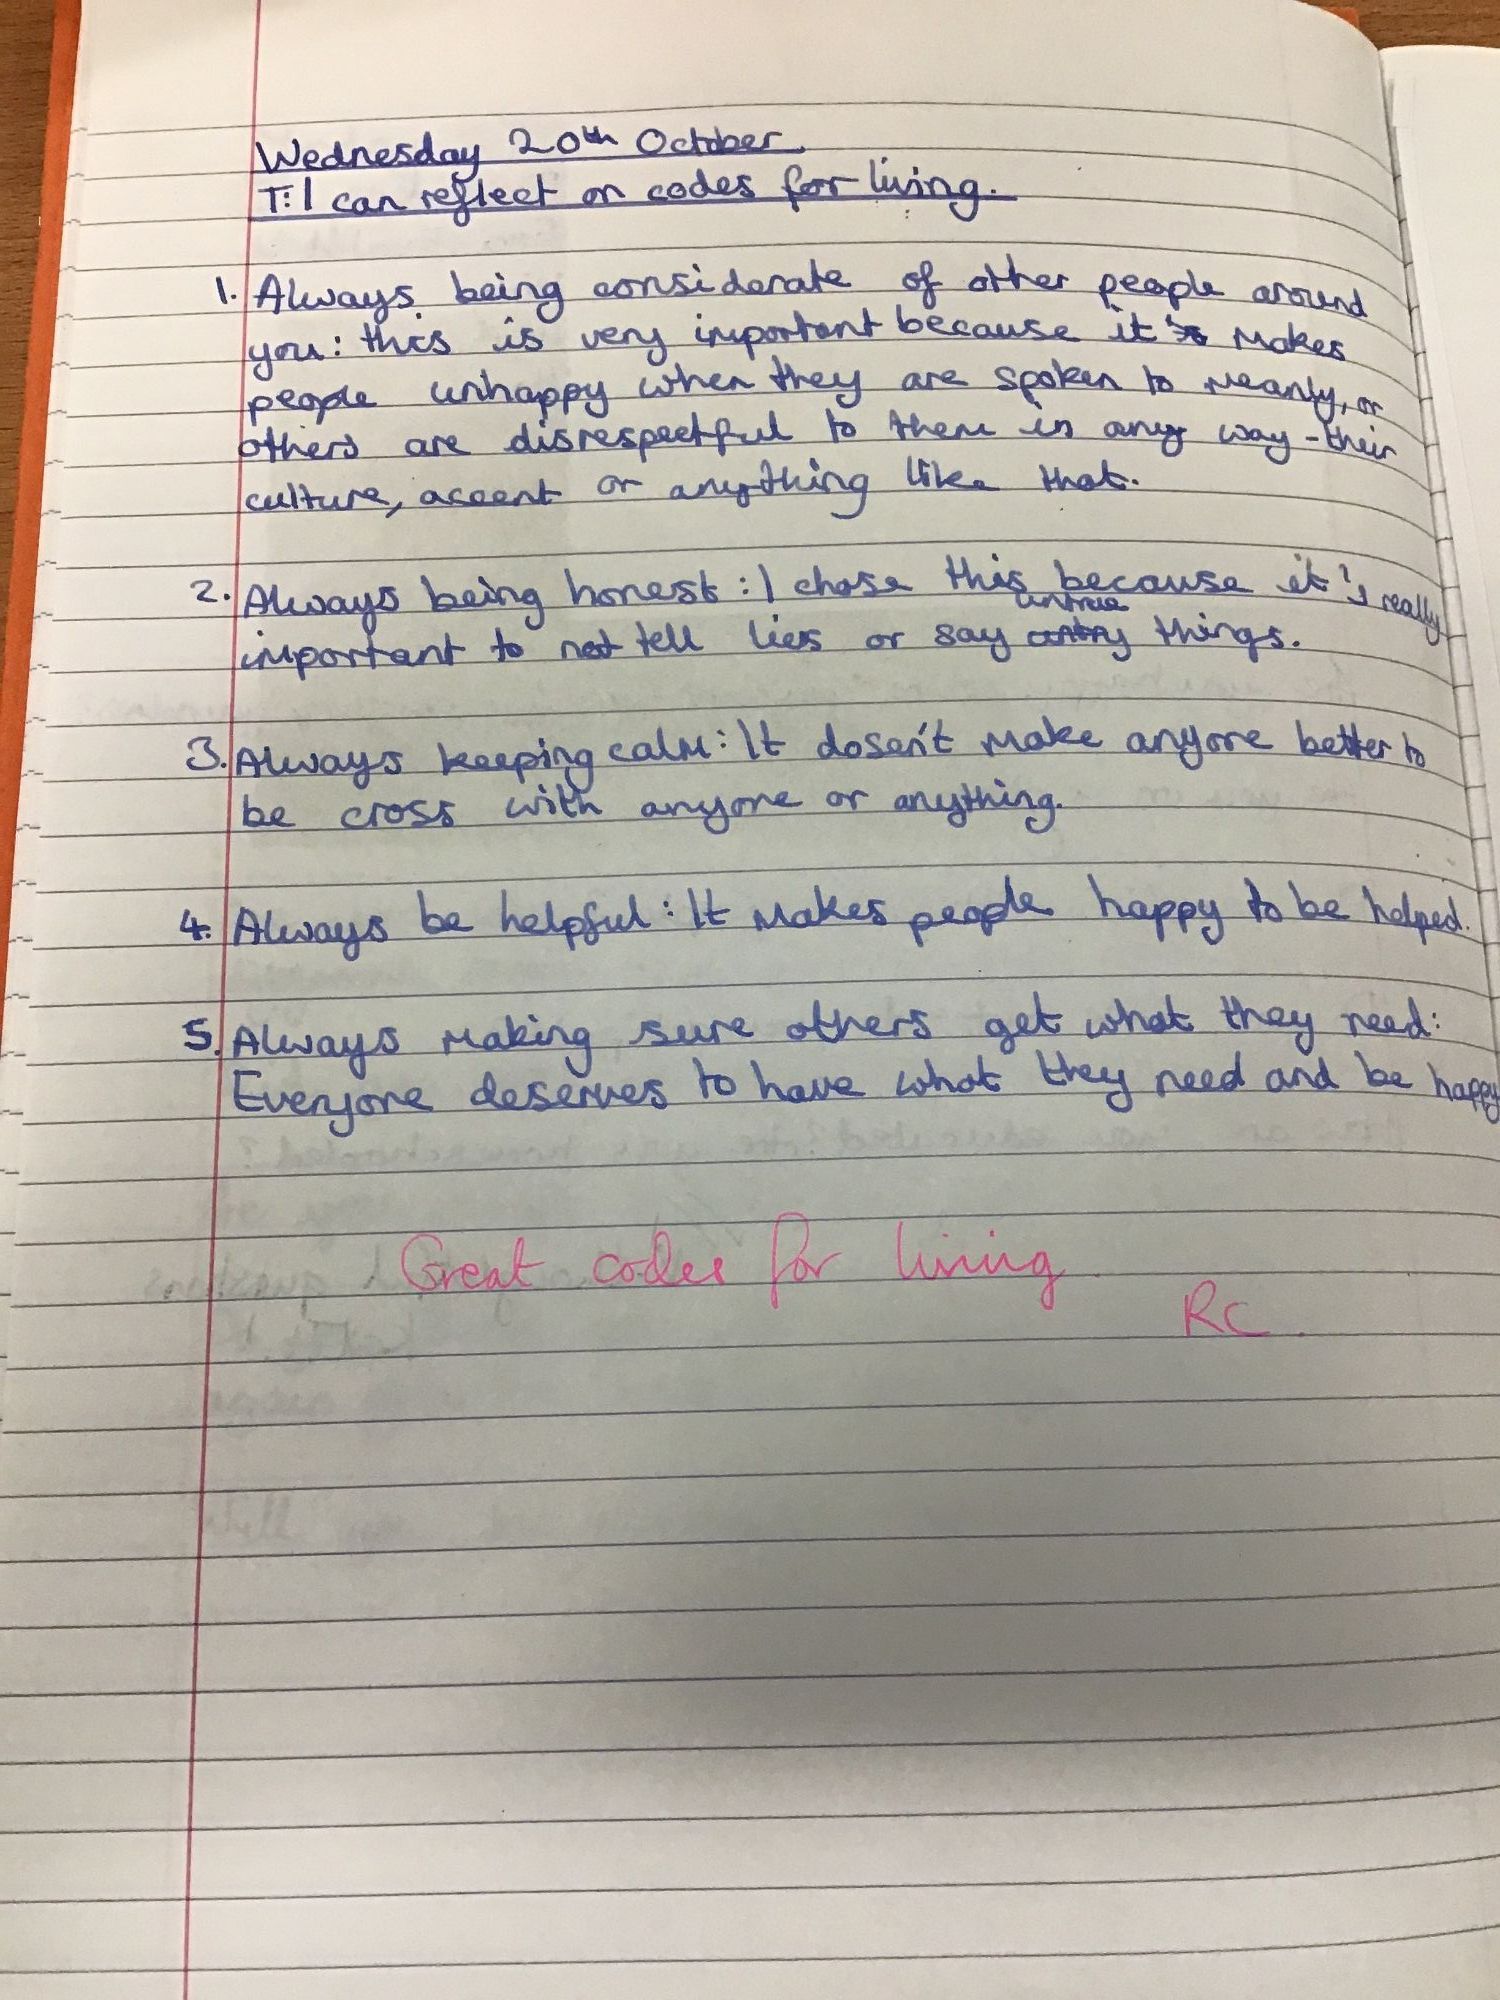 Wednesday 20th October
T: I can reflect on codes for living.
1. Always being considerate of other people around
you: this is very important because it makes
people unhappy when they are spoken to meanly, or
others are disrespectful to them in any way - their
culture, accent or anything like that.
2. Always being honest: I chose this because it's really
important to not tell lies or say untrue things.
3. Always keeping calm: It dosen't make anyone better to
be cross with anyone or anything.
4. Always be helpful: It makes people happy to be helped.
5. Always making sure others get what they need:
Everyone deserves to have what they need and be happy
Great codes for living.
RC.